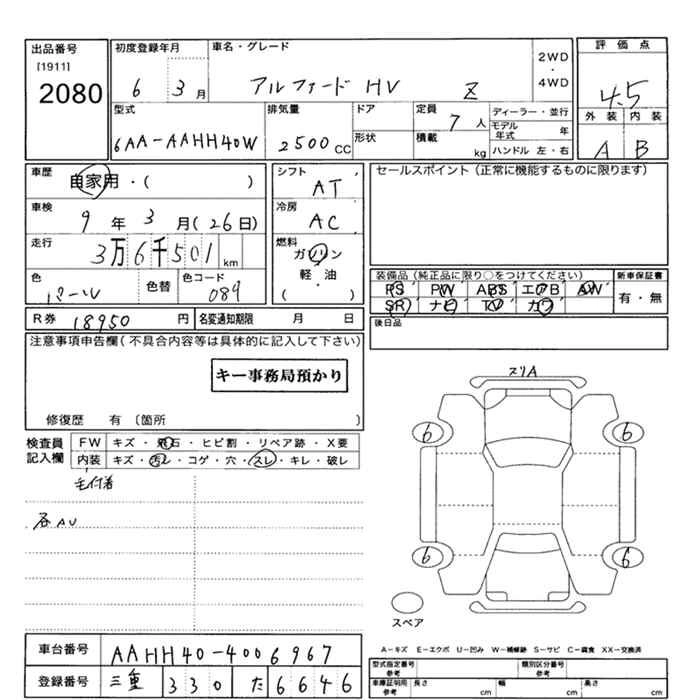 出品番号
[1911]
2080
初度登録年月
6 3月
車名・グレード
アルファード HV Z
2WD
・
4WD
評価点
4.5
外装 内装
A B
型式
6AA-AAHH40W
排気量
2500 CC
ドア
形状
定員
7人
積載
kg
ディーラー・並行
モデル年式 年
ハンドル 左・右
車歴
自家用・( )
車検
9年 3月(26日)
走行
3万6千501 km
色
パール
色替
色コード
089
シフト
AT
冷房
AC
燃料
ガソリン
軽・油
( )
セールスポイント(正常に機能するものに限ります)
装備品(純正品に限り○をつけてください)
PS PW ABS エアB AW
SR ナビ TV カワ
新車保証書
有・無
後日品
R券 18950 円
名変通知期限 月 日
注意事項申告欄(不具合内容等は具体的に記入して下さい)
キー事務局預かり
修復歴 有 〔箇所 〕
検査員
記入欄
FW キズ・飛石・ヒビ割・リペア跡・X要
内装 キズ・汚レ・コゲ・穴・スレ・キレ・破レ
毛付着
各AU
スリA
6 6
6 6
スペア
A-キズ E-エクボ U-凹み W-補修跡 S-サビ C-腐食 XX-交換済
車台番号 AAHH40-4006967
登録番号 三重 330 た 6646
型式指定番号 参考
類別区分番号 参考
車庫証明用 参考
長さ cm 幅 cm 高さ cm